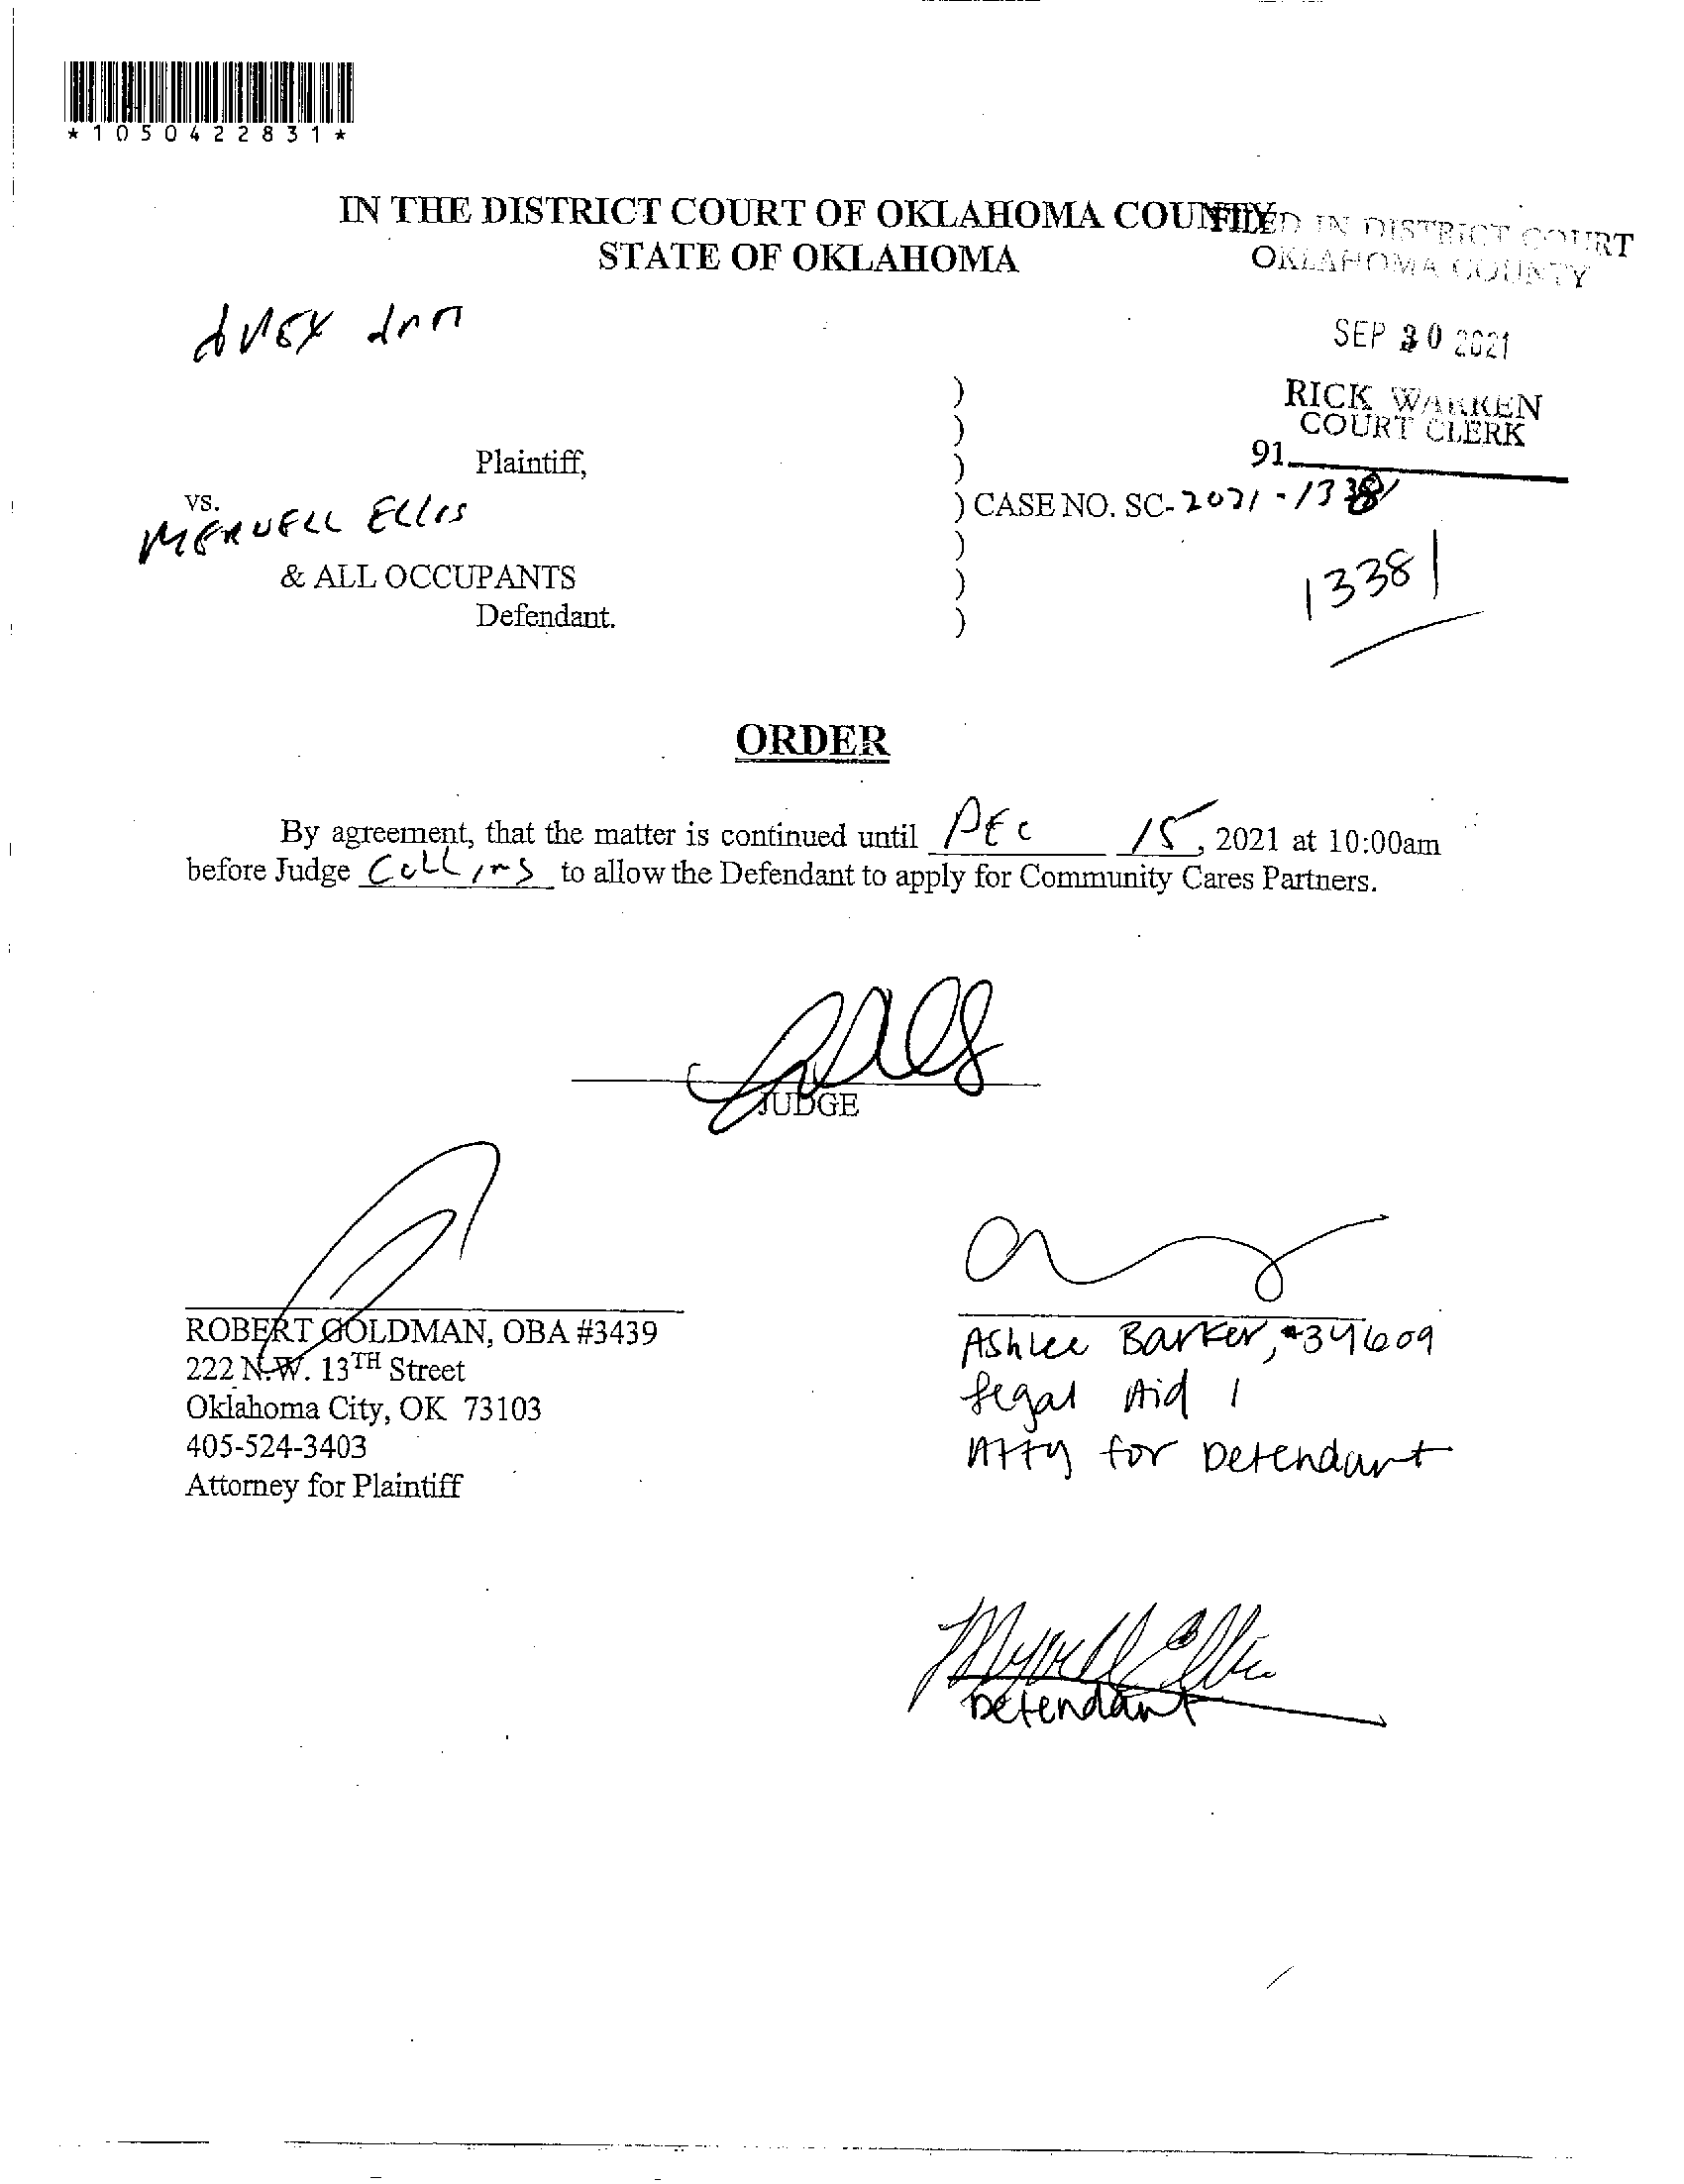 *1050422831*
IN THE DISTRICT COURT OF OKLAHOMA COUNTY
STATE OF OKLAHOMA
FILED IN DISTRICT COURT
OKLAHOMA COUNTY
SEP 30 2021
RICK WARREN
COURT CLERK
91
Inn
)
)
Plaintiff, )
vs. ) CASE NO. SC-2021-
13381
MERVELL ELLIS )
& ALL OCCUPANTS )
Defendant. )
ORDER
By agreement, that the matter is continued until DEC 15, 2021 at 10:00am
before Judge Collins to allow the Defendant to apply for Community Cares Partners.
JUDGE
ROBERT GOLDMAN, OBA #3439
222 N.W. 13TH Street
Oklahoma City, OK 73103
405-524-3403
Attorney for Plaintiff
Ashlee Barker, #34609
Legal Aid
Atty for Defendant
Defendant